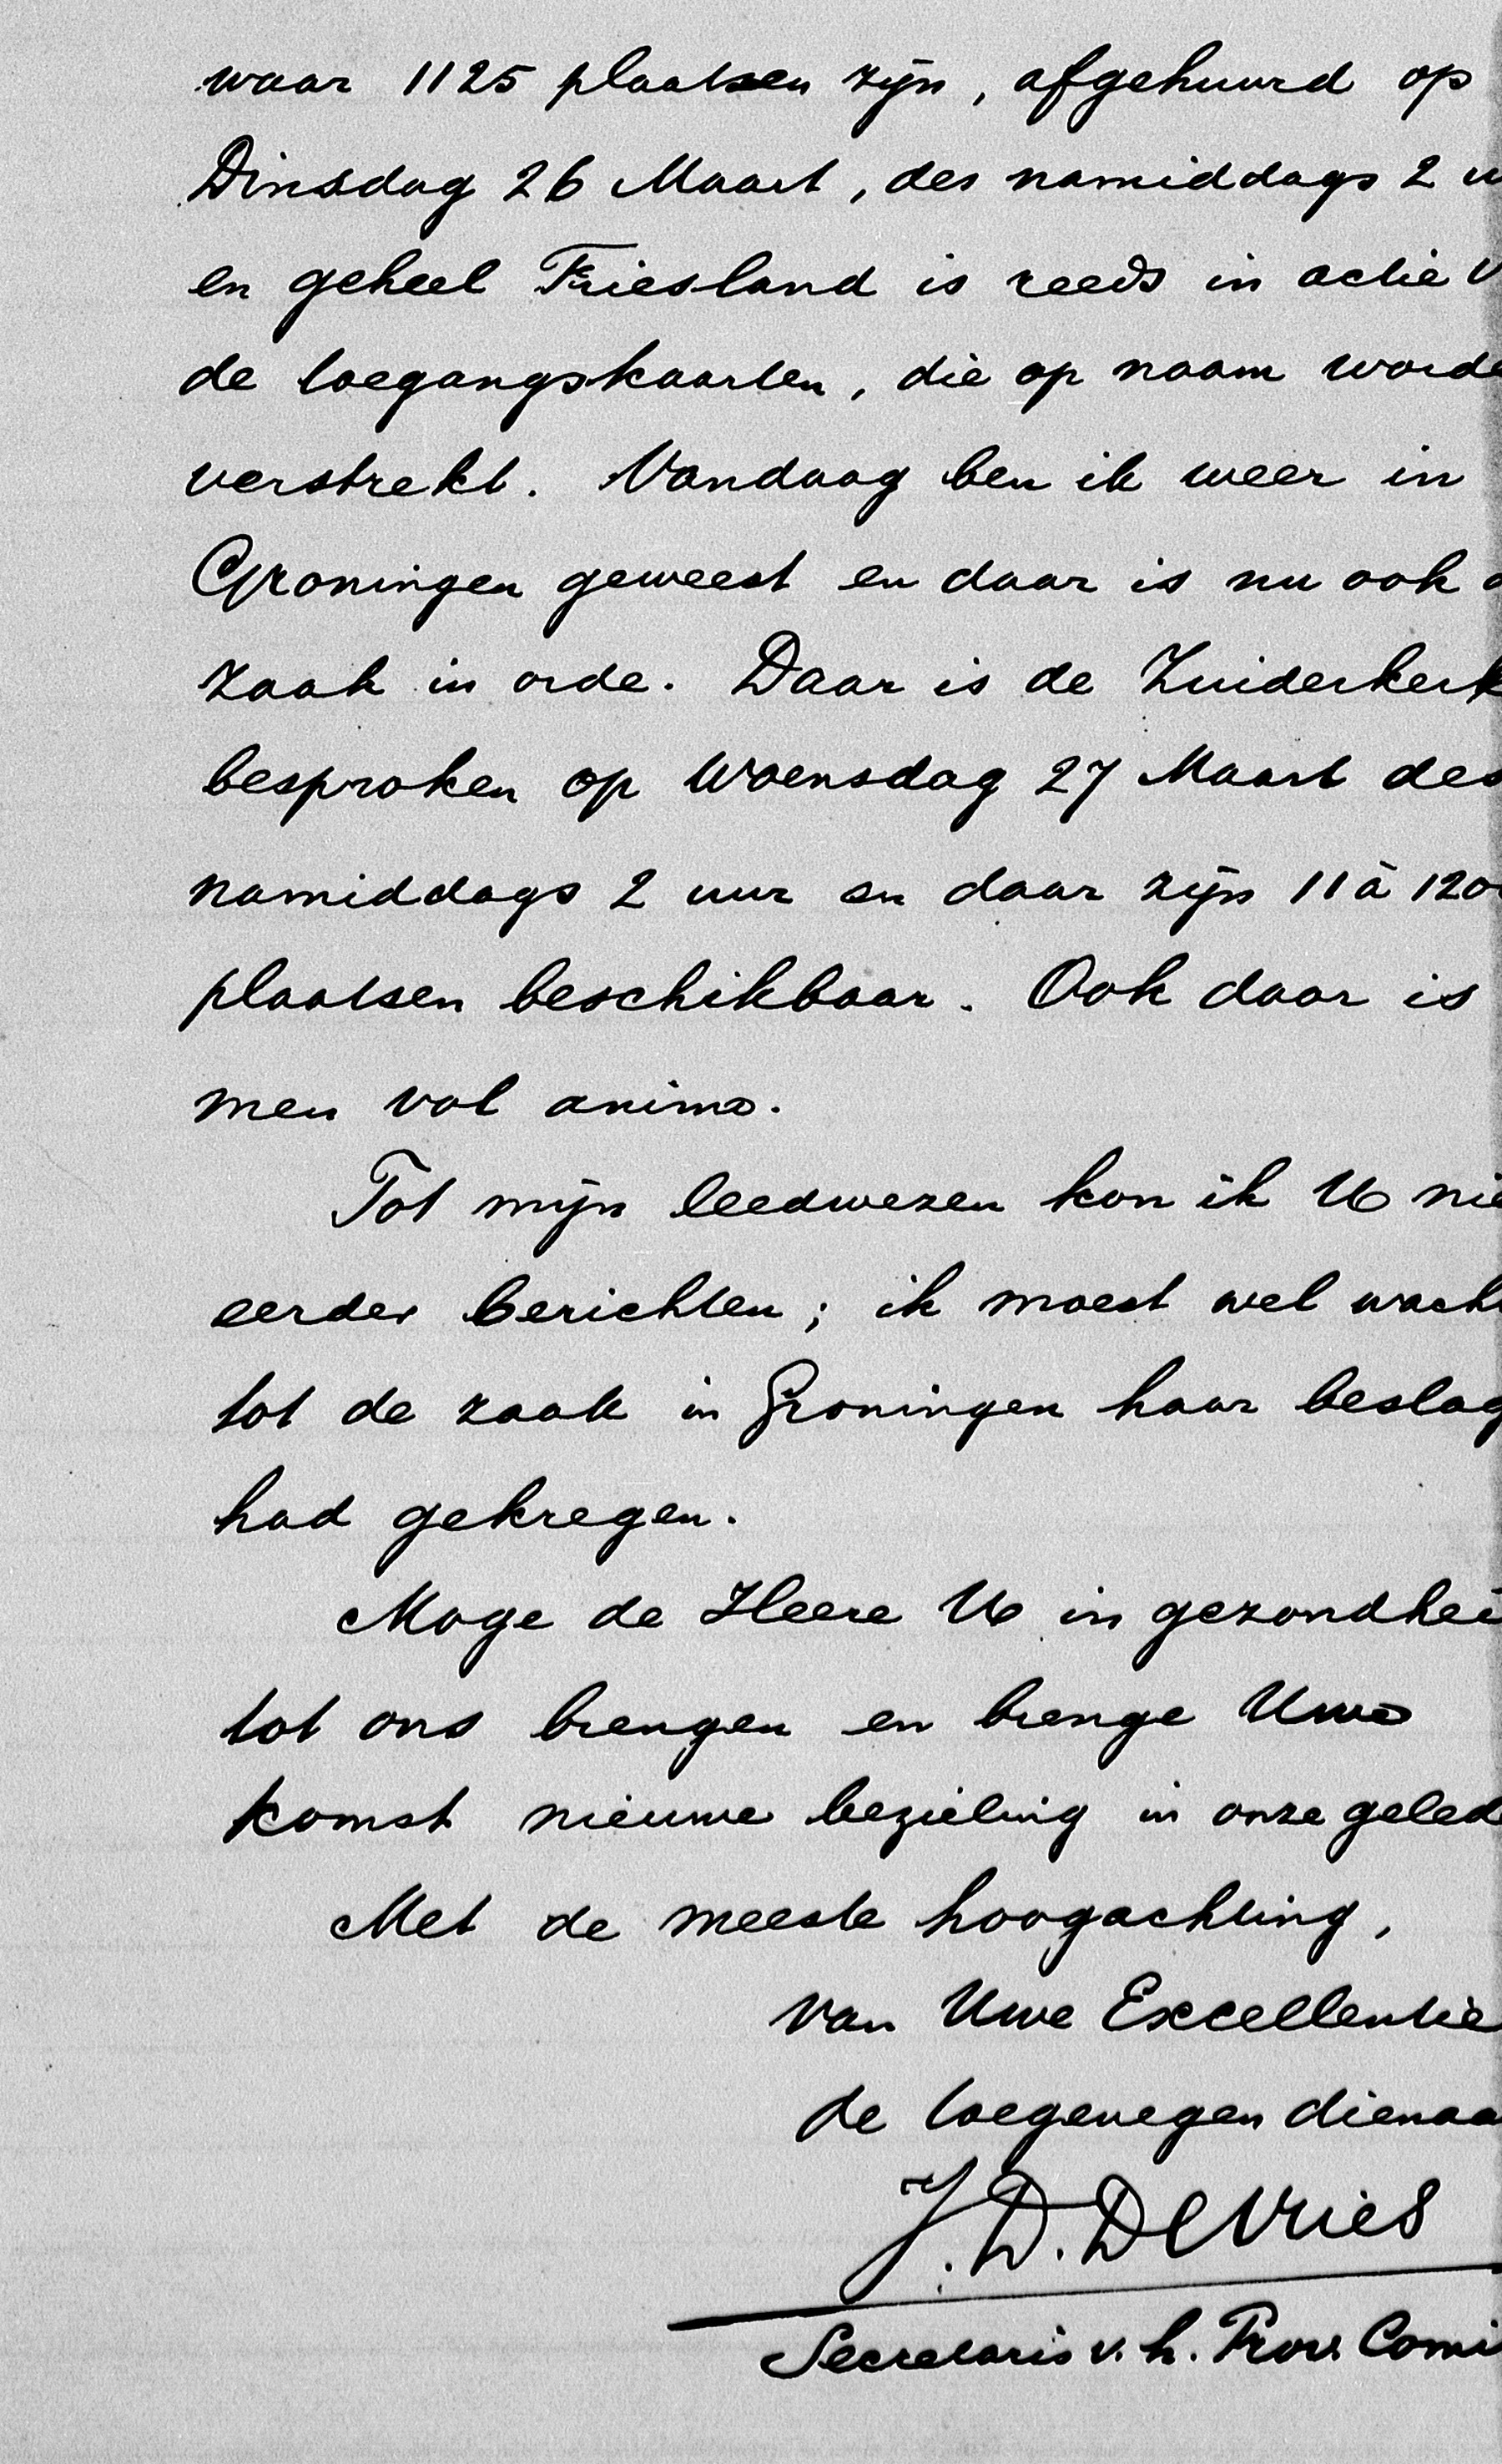 waar 1125 plaatsen zijn, afgehuurd op
Dinsdag 26 Maart, des namiddags 2 u
en geheel Friesland is reeds in actie v
de toegangskaarten, die op naam worde
verstrekt. Vandaag ben ik weer in
Groningen geweest en daar is nu ook d
zaak in orde. Daar is de Zuiderkerk
besproken op Woensdag 27 Maart des
namiddags 2 uur en daar zijn 11 à 120
plaatsen beschikbaar. Ook daar is
men vol animo.
Tot mijn leedwezen kon ik U nie
eerder berichten; ik moest wel wacht
tot de zaak in Groningen haar beslag
had gekregen.
Moge de Heere U in gezondhei
tot ons brengen en brenge Uwe
komst nieuwe bezieling in onze geled
Met de meeste hoogachting,
van Uwe Excellentie
de toegenegen dienaa
J. D. De Vries
Secretaris v. h. Prov. Comi